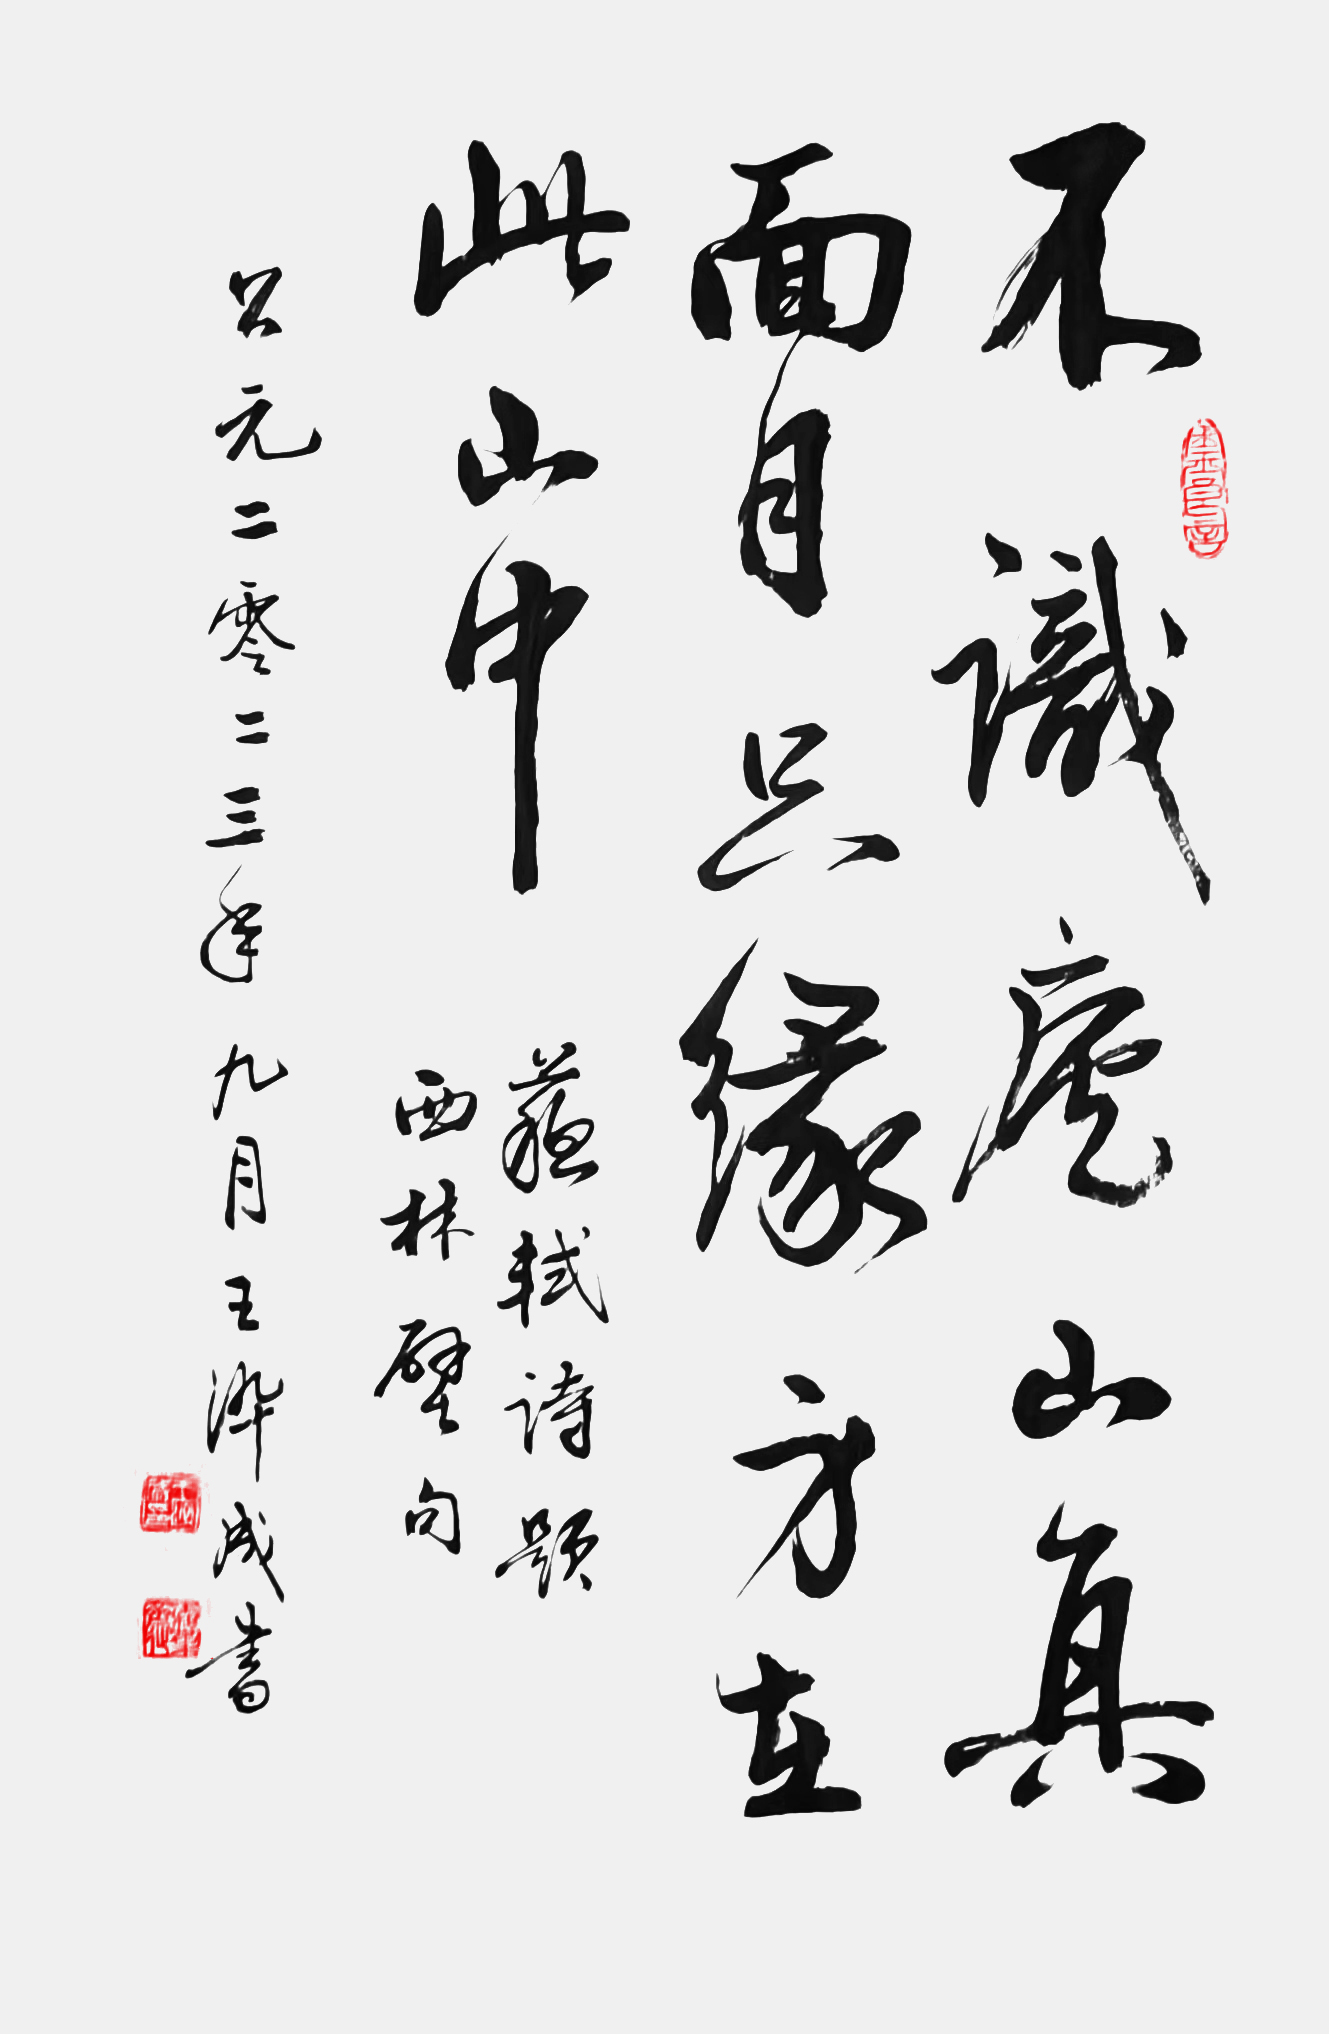 不識廬山真
面目只緣方在
此山中
蘇軾诗题
西林壁句
公元二零二三年九月王 成書